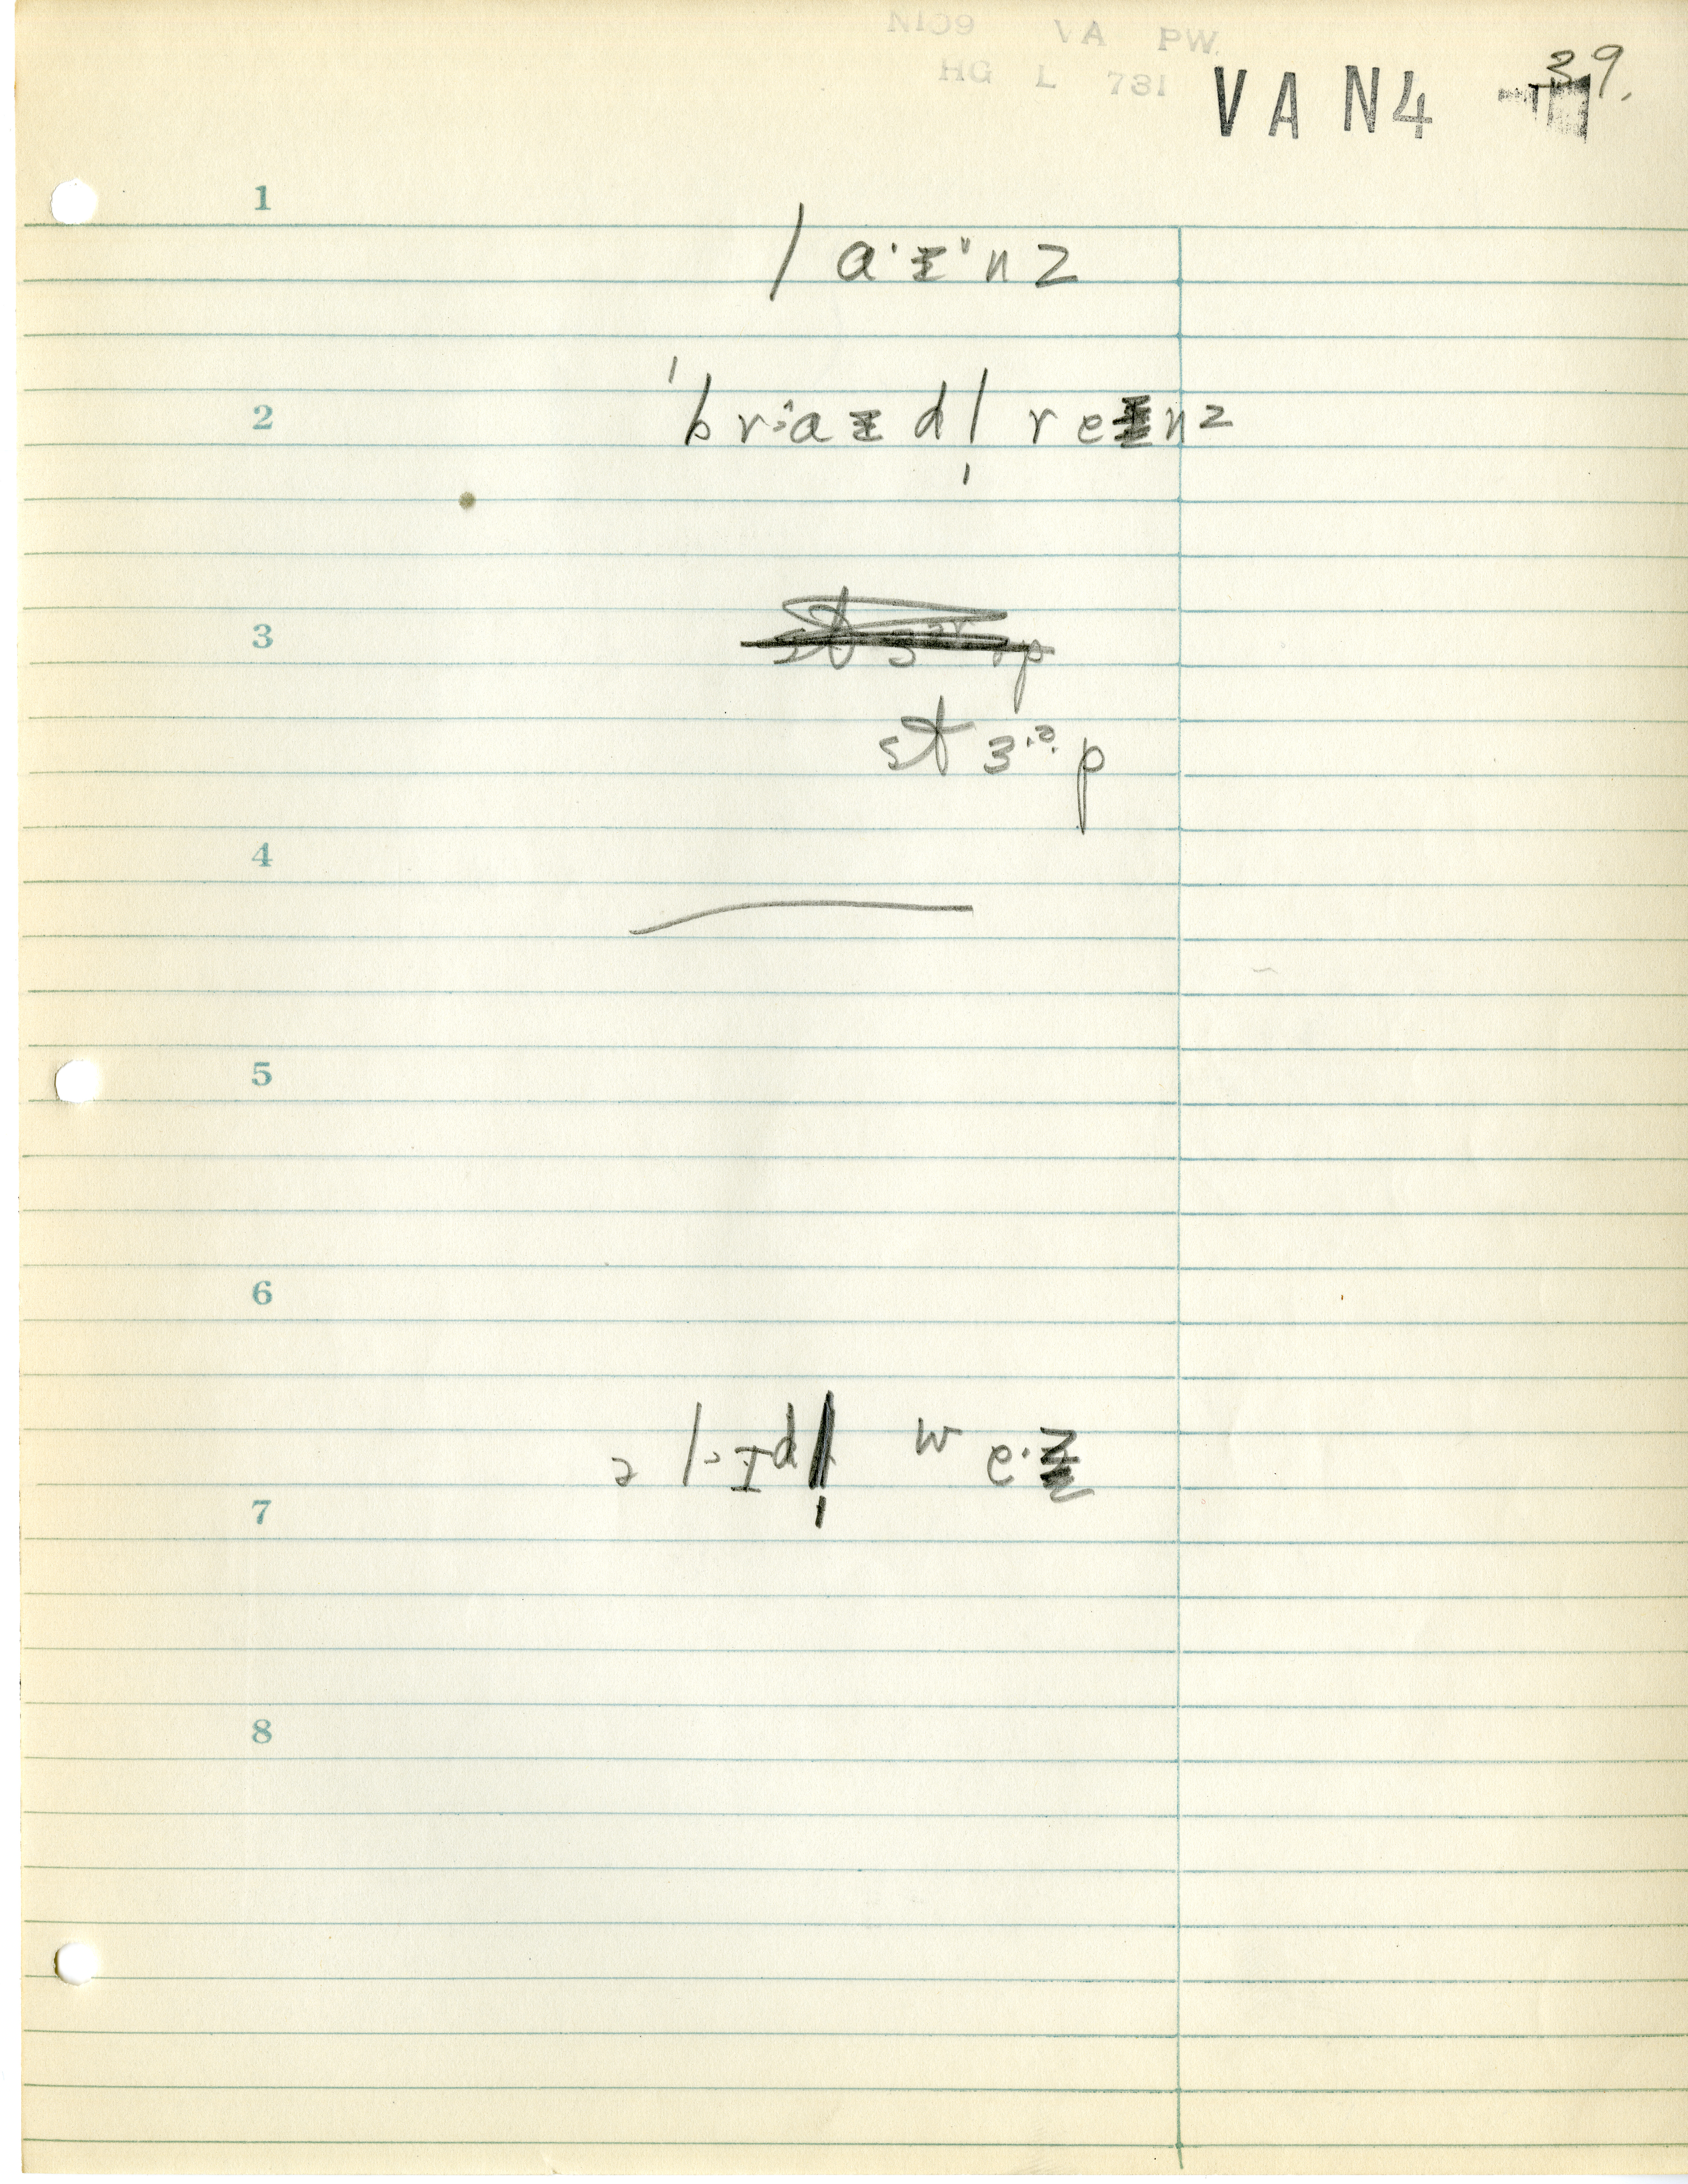 N109 VA PW.
HG L 731
VAN4 39.
1
l a·ɪ·n z
2
ˈb r a ɪ d l̩ r e ɪ n z
3
st ɜ p
4
5
6
ə l ɪ d l̩ w e·ɪ
7
8